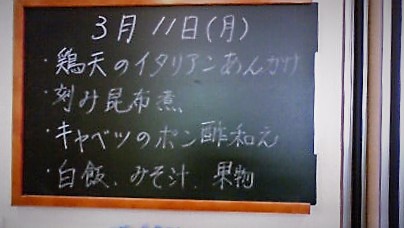 3月11日(月)
・鶏天のイタリアンあんかけ
・刻み昆布煮
・キャベツのポン酢和え
・白飯、みそ汁、果物